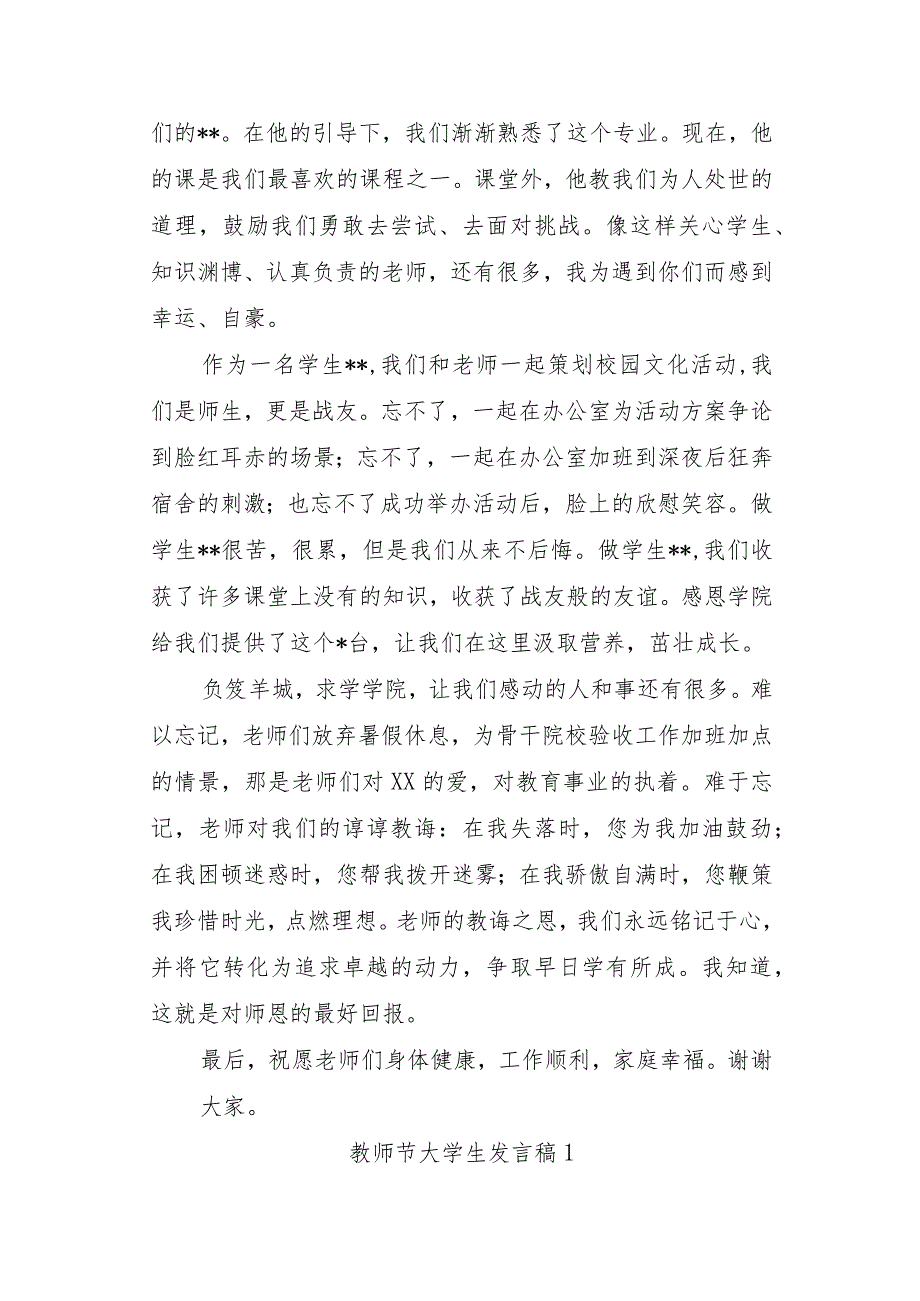 们的**。在他的引导下，我们渐渐熟悉了这个专业。现在，他
的课是我们最喜欢的课程之一。课堂外，他教我们为人处世的
道理，鼓励我们勇敢去尝试、去面对挑战。像这样关心学生、
知识渊博、认真负责的老师，还有很多，我为遇到你们而感到
幸运、自豪。
作为一名学生**,我们和老师一起策划校园文化活动,我
们是师生，更是战友。忘不了，一起在办公室为活动方案争论
到脸红耳赤的场景；忘不了，一起在办公室加班到深夜后狂奔
宿舍的刺激；也忘不了成功举办活动后，脸上的欣慰笑容。做
学生**很苦，很累，但是我们从来不后悔。做学生**,我们收
获了许多课堂上没有的知识，收获了战友般的友谊。感恩学院
给我们提供了这个*台，让我们在这里汲取营养，茁壮成长。
负笈羊城，求学学院，让我们感动的人和事还有很多。难
以忘记，老师们放弃暑假休息，为骨干院校验收工作加班加点
的情景，那是老师们对 XX 的爱，对教育事业的执着。难于忘
记，老师对我们的谆谆教诲：在我失落时，您为我加油鼓劲；
在我困顿迷惑时，您帮我拨开迷雾；在我骄傲自满时，您鞭策
我珍惜时光，点燃理想。老师的教诲之恩，我们永远铭记于心，
并将它转化为追求卓越的动力，争取早日学有所成。我知道，
这就是对师恩的最好回报。
最后，祝愿老师们身体健康，工作顺利，家庭幸福。谢谢
大家。
教师节大学生发言稿 1